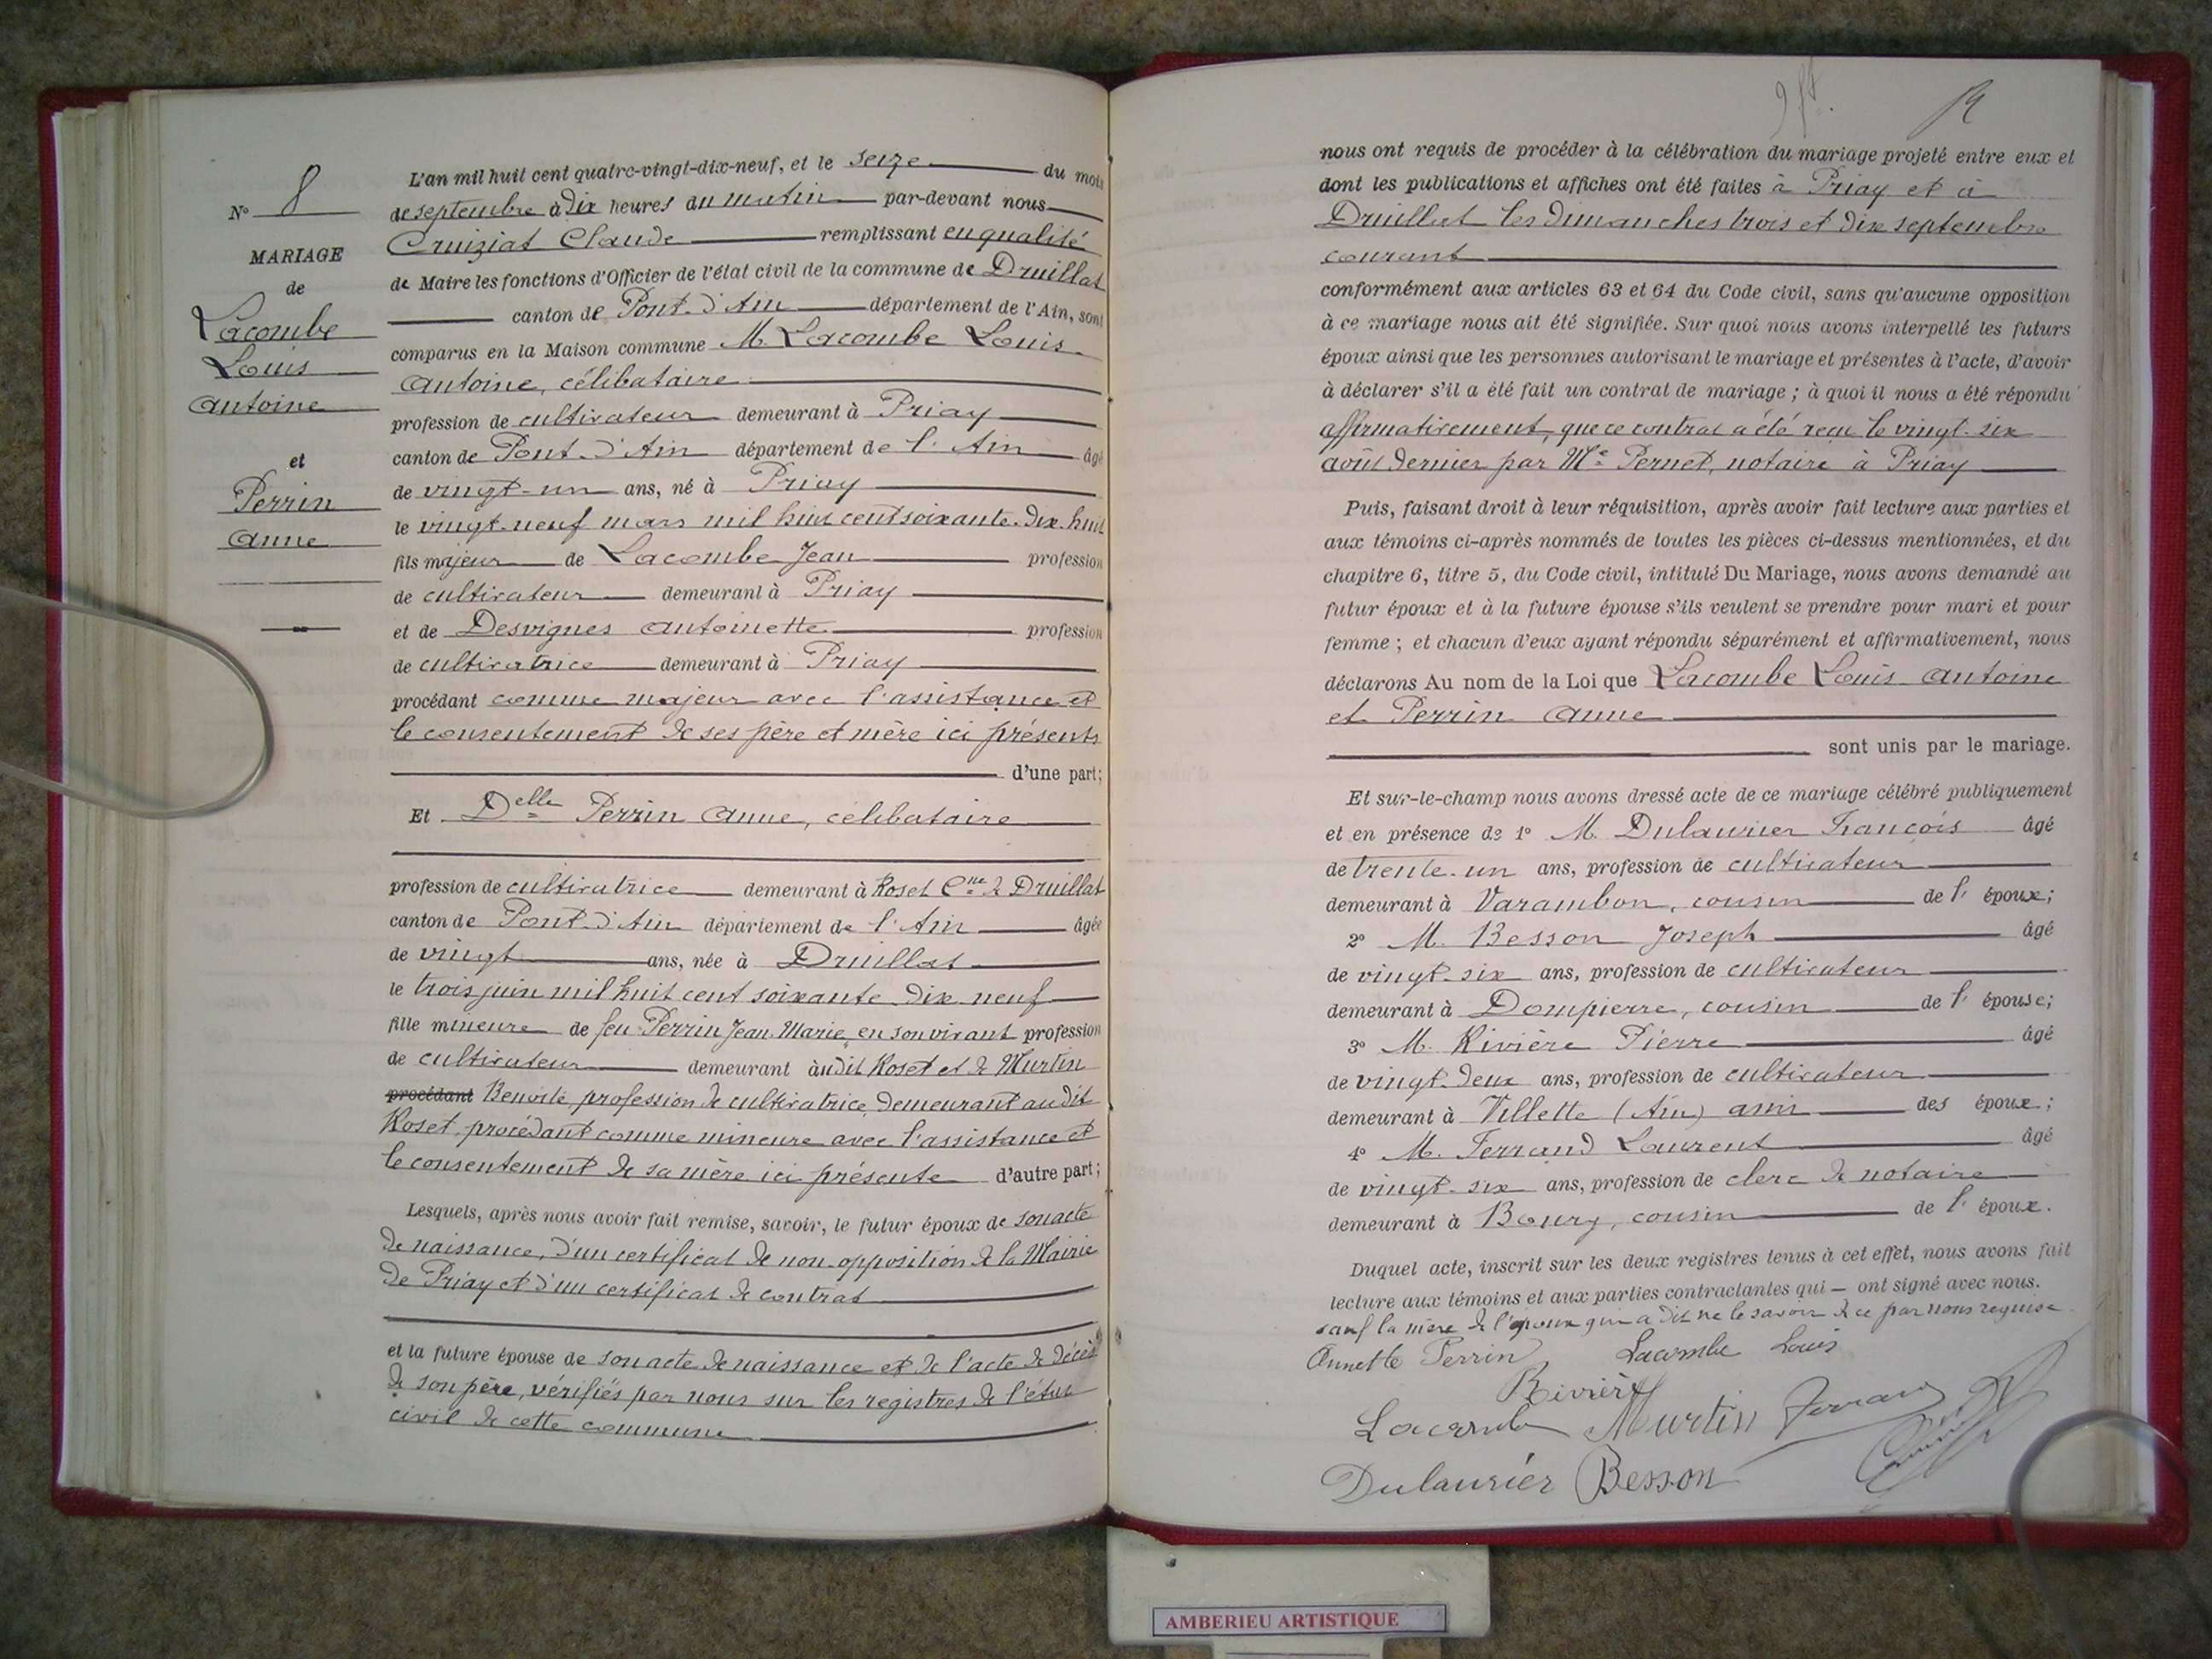 N° 8
MARIAGE
de
Lacombe
Louis
Antoine
et
Perrin
Anne
L'an mil huit cent quatre-vingt-dix-neuf, et le seize du mois
de septembre à Dix heures du matin par-devant nous
Cruiziat Claude remplissant en qualité
de Maire les fonctions d'Officier de l'état civil de la commune de Druillat
canton de Pont-d'Ain département de l'Ain, sont
comparus en la Maison commune M. Lacombe Louis
Antoine, célibataire
profession de cultivateur demeurant à Priay
canton de Pont-d'Ain département de l'Ain âgé
de vingt-un ans, né à Priay
le vingt-neuf mars mil huit cent soixante-dix-huit
fils majeur de Lacombe Jean profession
de cultivateur demeurant à Priay
et de Desvignes Antoinette profession
de cultivatrice demeurant à Priay
procédant comme majeur avec l'assistance et
le consentement de ses père et mère ici présents
d'une part;
Et Delle Perrin Anne, célibataire
profession de cultivatrice demeurant à Roset Cne de Druillat
canton de Pont-d'Ain département de l'Ain âgée
de vingt ans, née à Druillat
le trois juin mil huit cent soixante-dix-neuf
fille mineure de feu Perrin Jean-Marie, en son vivant profession
de cultivateur demeurant audit Roset et de Murtin
procédant Benoite, profession de cultivatrice, demeurant audit
Roset, procédant comme mineure avec l'assistance et
le consentement de sa mère ici présente d'autre part;
Lesquels, après nous avoir fait remise, savoir, le futur époux de son acte
de naissance, d'un certificat de non-opposition de la Mairie
de Priay et d'un certificat de contrat
et la future épouse de son acte de naissance et de l'acte de décès
de son père, vérifiés par nous sur les registres de l'état
civil de cette commune
nous ont requis de procéder à la célébration du mariage projeté entre eux et
dont les publications et affiches ont été faites à Priay et à
Druillat les dimanches trois et dix septembre
courant
conformément aux articles 63 et 64 du Code civil, sans qu'aucune opposition
à ce mariage nous ait été signifiée. Sur quoi nous avons interpellé les futurs
époux ainsi que les personnes autorisant le mariage et présentes à l'acte, d'avoir
à déclarer s'il a été fait un contrat de mariage ; à quoi il nous a été répondu
affirmativement, que ce contrat a été reçu le vingt-six
août dernier par Me Pernet, notaire à Priay
Puis, faisant droit à leur réquisition, après avoir fait lecture aux parties et
aux témoins ci-après nommés de toutes les pièces ci-dessus mentionnées, et du
chapitre 6, titre 5, du Code civil, intitulé Du Mariage, nous avons demandé au
futur époux et à la future épouse s'ils veulent se prendre pour mari et pour
femme ; et chacun d'eux ayant répondu séparément et affirmativement, nous
déclarons Au nom de la Loi que Lacombe Louis Antoine
et Perrin Anne
sont unis par le mariage.
Et sur-le-champ nous avons dressé acte de ce mariage célébré publiquement
et en présence de 1° M. Dulaurier François âgé
de trente-un ans, profession de cultivateur
demeurant à Varambon, cousin de l' époux;
2° M. Besson Joseph âgé
de vingt-six ans, profession de cultivateur
demeurant à Dompierre, cousin de l' épouse;
3° M. Rivière Pierre âgé
de vingt-deux ans, profession de cultivateur
demeurant à Villette (Ain) ami des époux;
4° M. Ferrand Laurent âgé
de vingt-six ans, profession de clerc de notaire
demeurant à Bourg, cousin de l' époux.
Duquel acte, inscrit sur les deux registres tenus à cet effet, nous avons fait
lecture aux témoins et aux parties contractantes qui — ont signé avec nous.
sauf la mère de l'époux qui a dit ne le savoir de ce par nous requise
Annette Perrin Lacombe Louis
Rivière
Lacombe Murtin Ferrand
Dulaurier Besson
AMBERIEU ARTISTIQUE